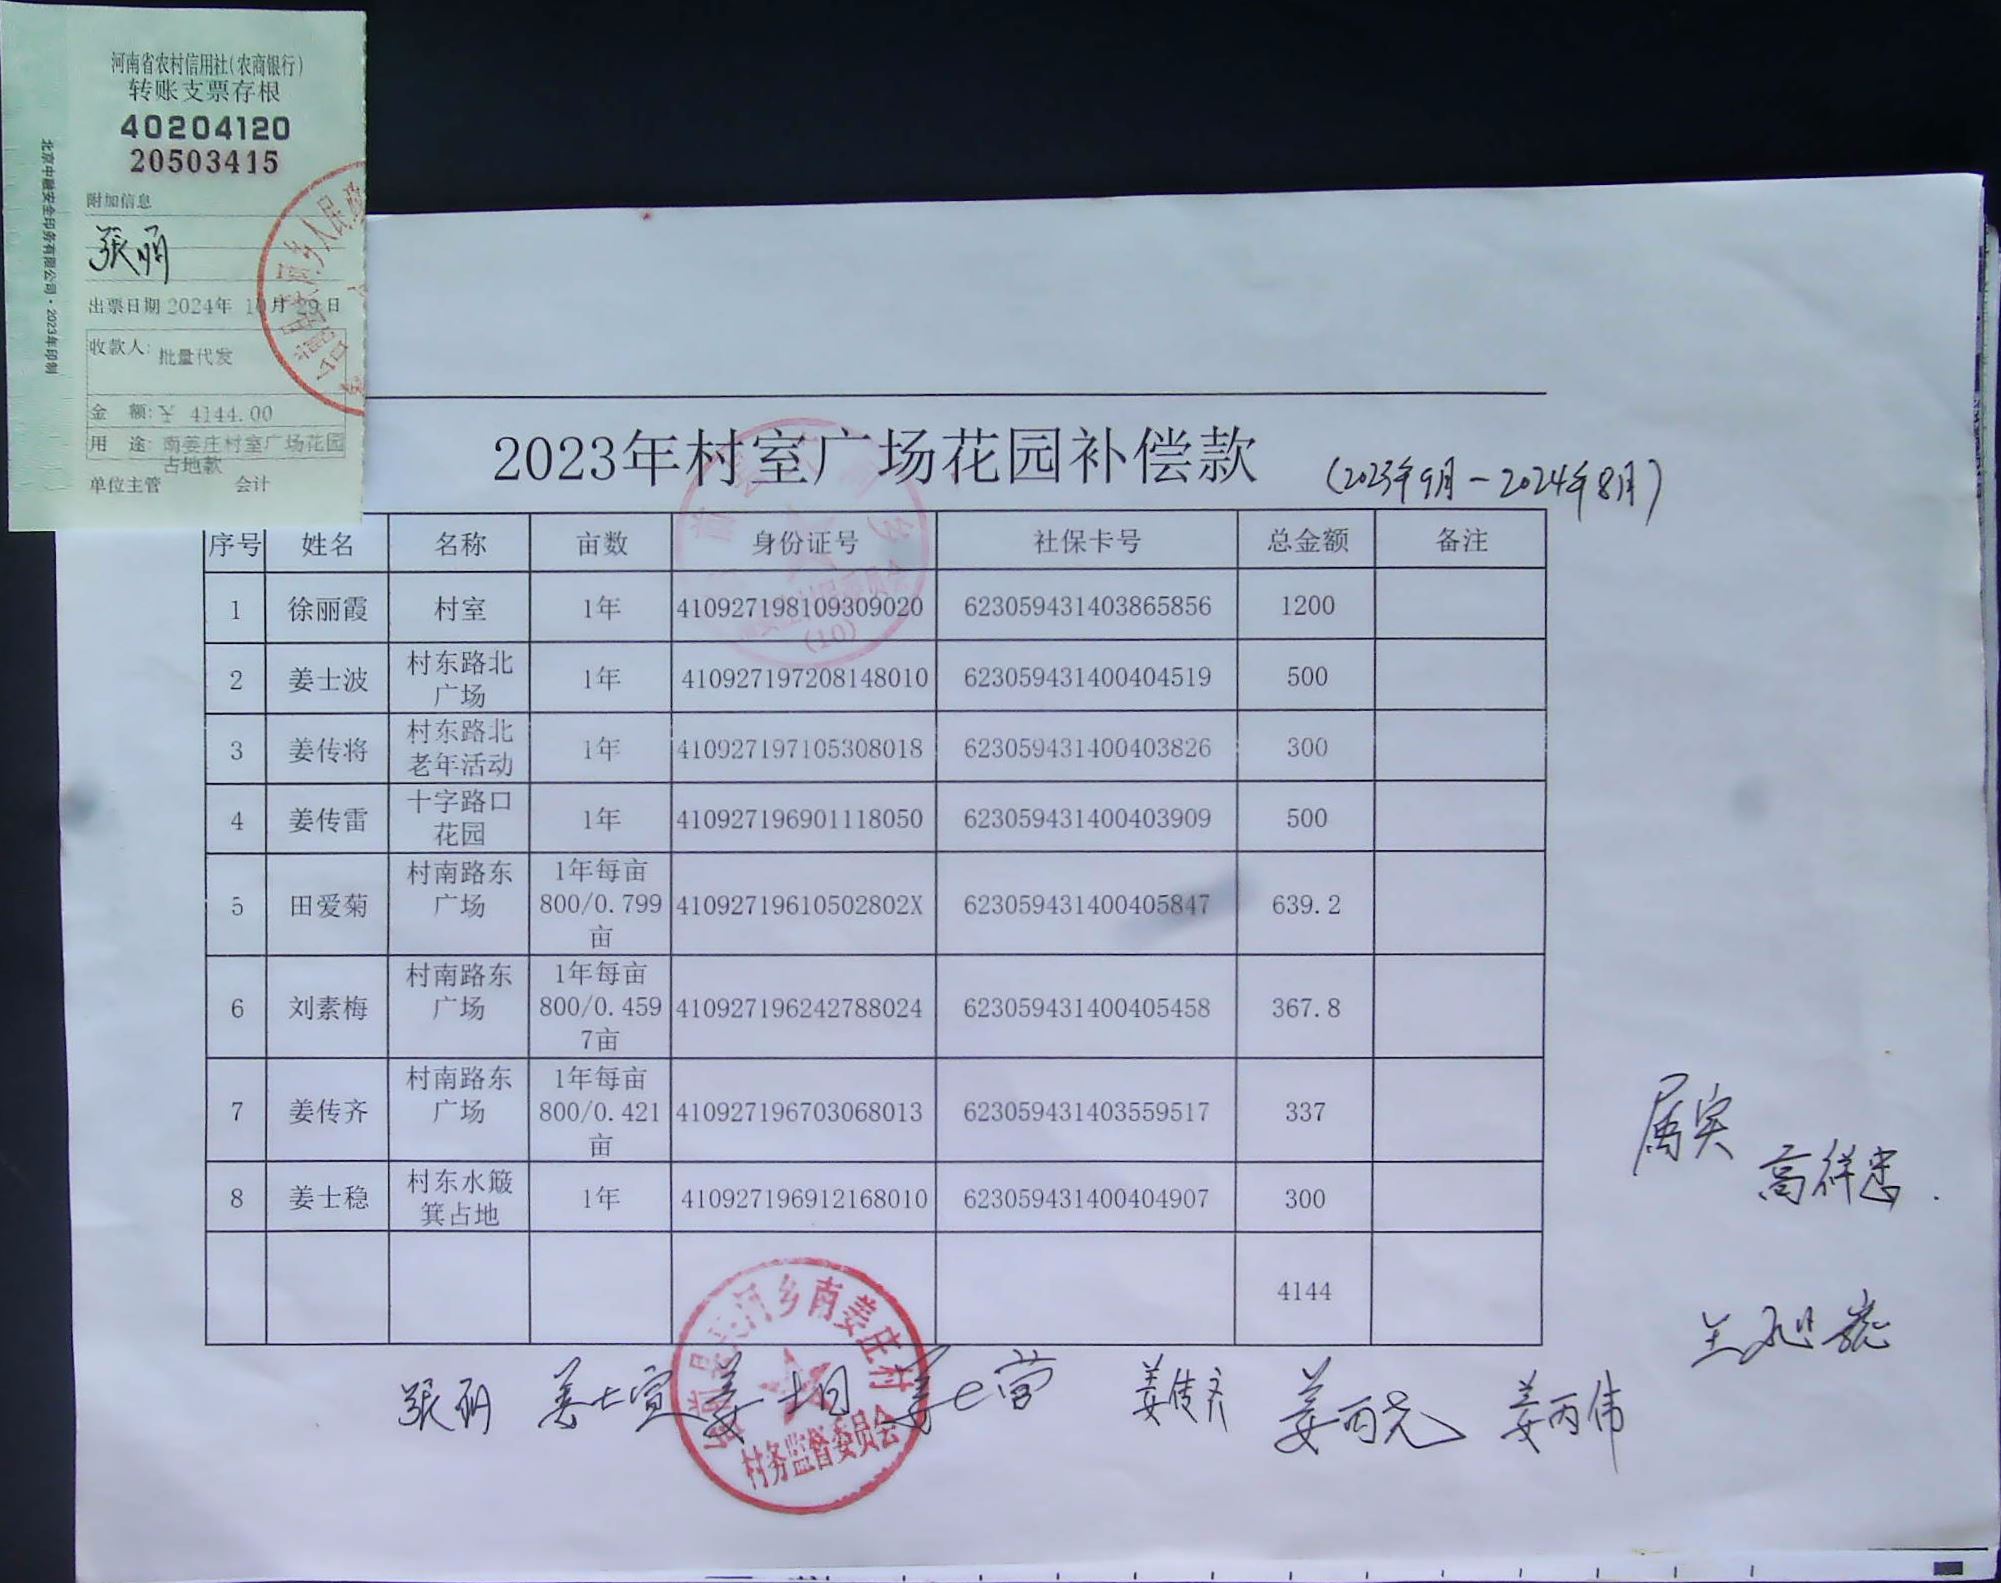 河南省农村信用社(农商银行)
转账支票存根
40204120
20503415
附加信息
張丽
出票日期 2024年 10月 29日
收款人: 批量代发
金 额: ¥ 4144.00
用 途: 南姜庄村室广场花园
占地款
单位主管 会计
北京中融安全印务有限公司·2023年印制
2023年村室广场花园补偿款 (2023年9月-2024年8月)
序号 姓名 名称 亩数 身份证号 社保卡号 总金额 备注
1 徐丽霞 村室 1年 410927198109309020 623059431403865856 1200
2 姜士波 村东路北
广场 1年 410927197208148010 623059431400404519 500
3 姜传将 村东路北
老年活动 1年 410927197105308018 623059431400403826 300
4 姜传雷 十字路口
花园 1年 410927196901118050 623059431400403909 500
5 田爱菊 村南路东
广场 1年每亩
800/0.799
亩 41092719610502802X 623059431400405847 639.2
6 刘素梅 村南路东
广场 1年每亩
800/0.459
7亩 410927196242788024 623059431400405458 367.8
7 姜传齐 村南路东
广场 1年每亩
800/0.421
亩 410927196703068013 623059431403559517 337
8 姜士稳 村东水簸
箕占地 1年 410927196912168010 623059431400404907 300
4144
属实
高祥忠
河乡南姜庄村
村务监督委员会
(10)
張丽 姜士宣 姜士日 姜七营 姜传齐 姜丙元 姜丙伟